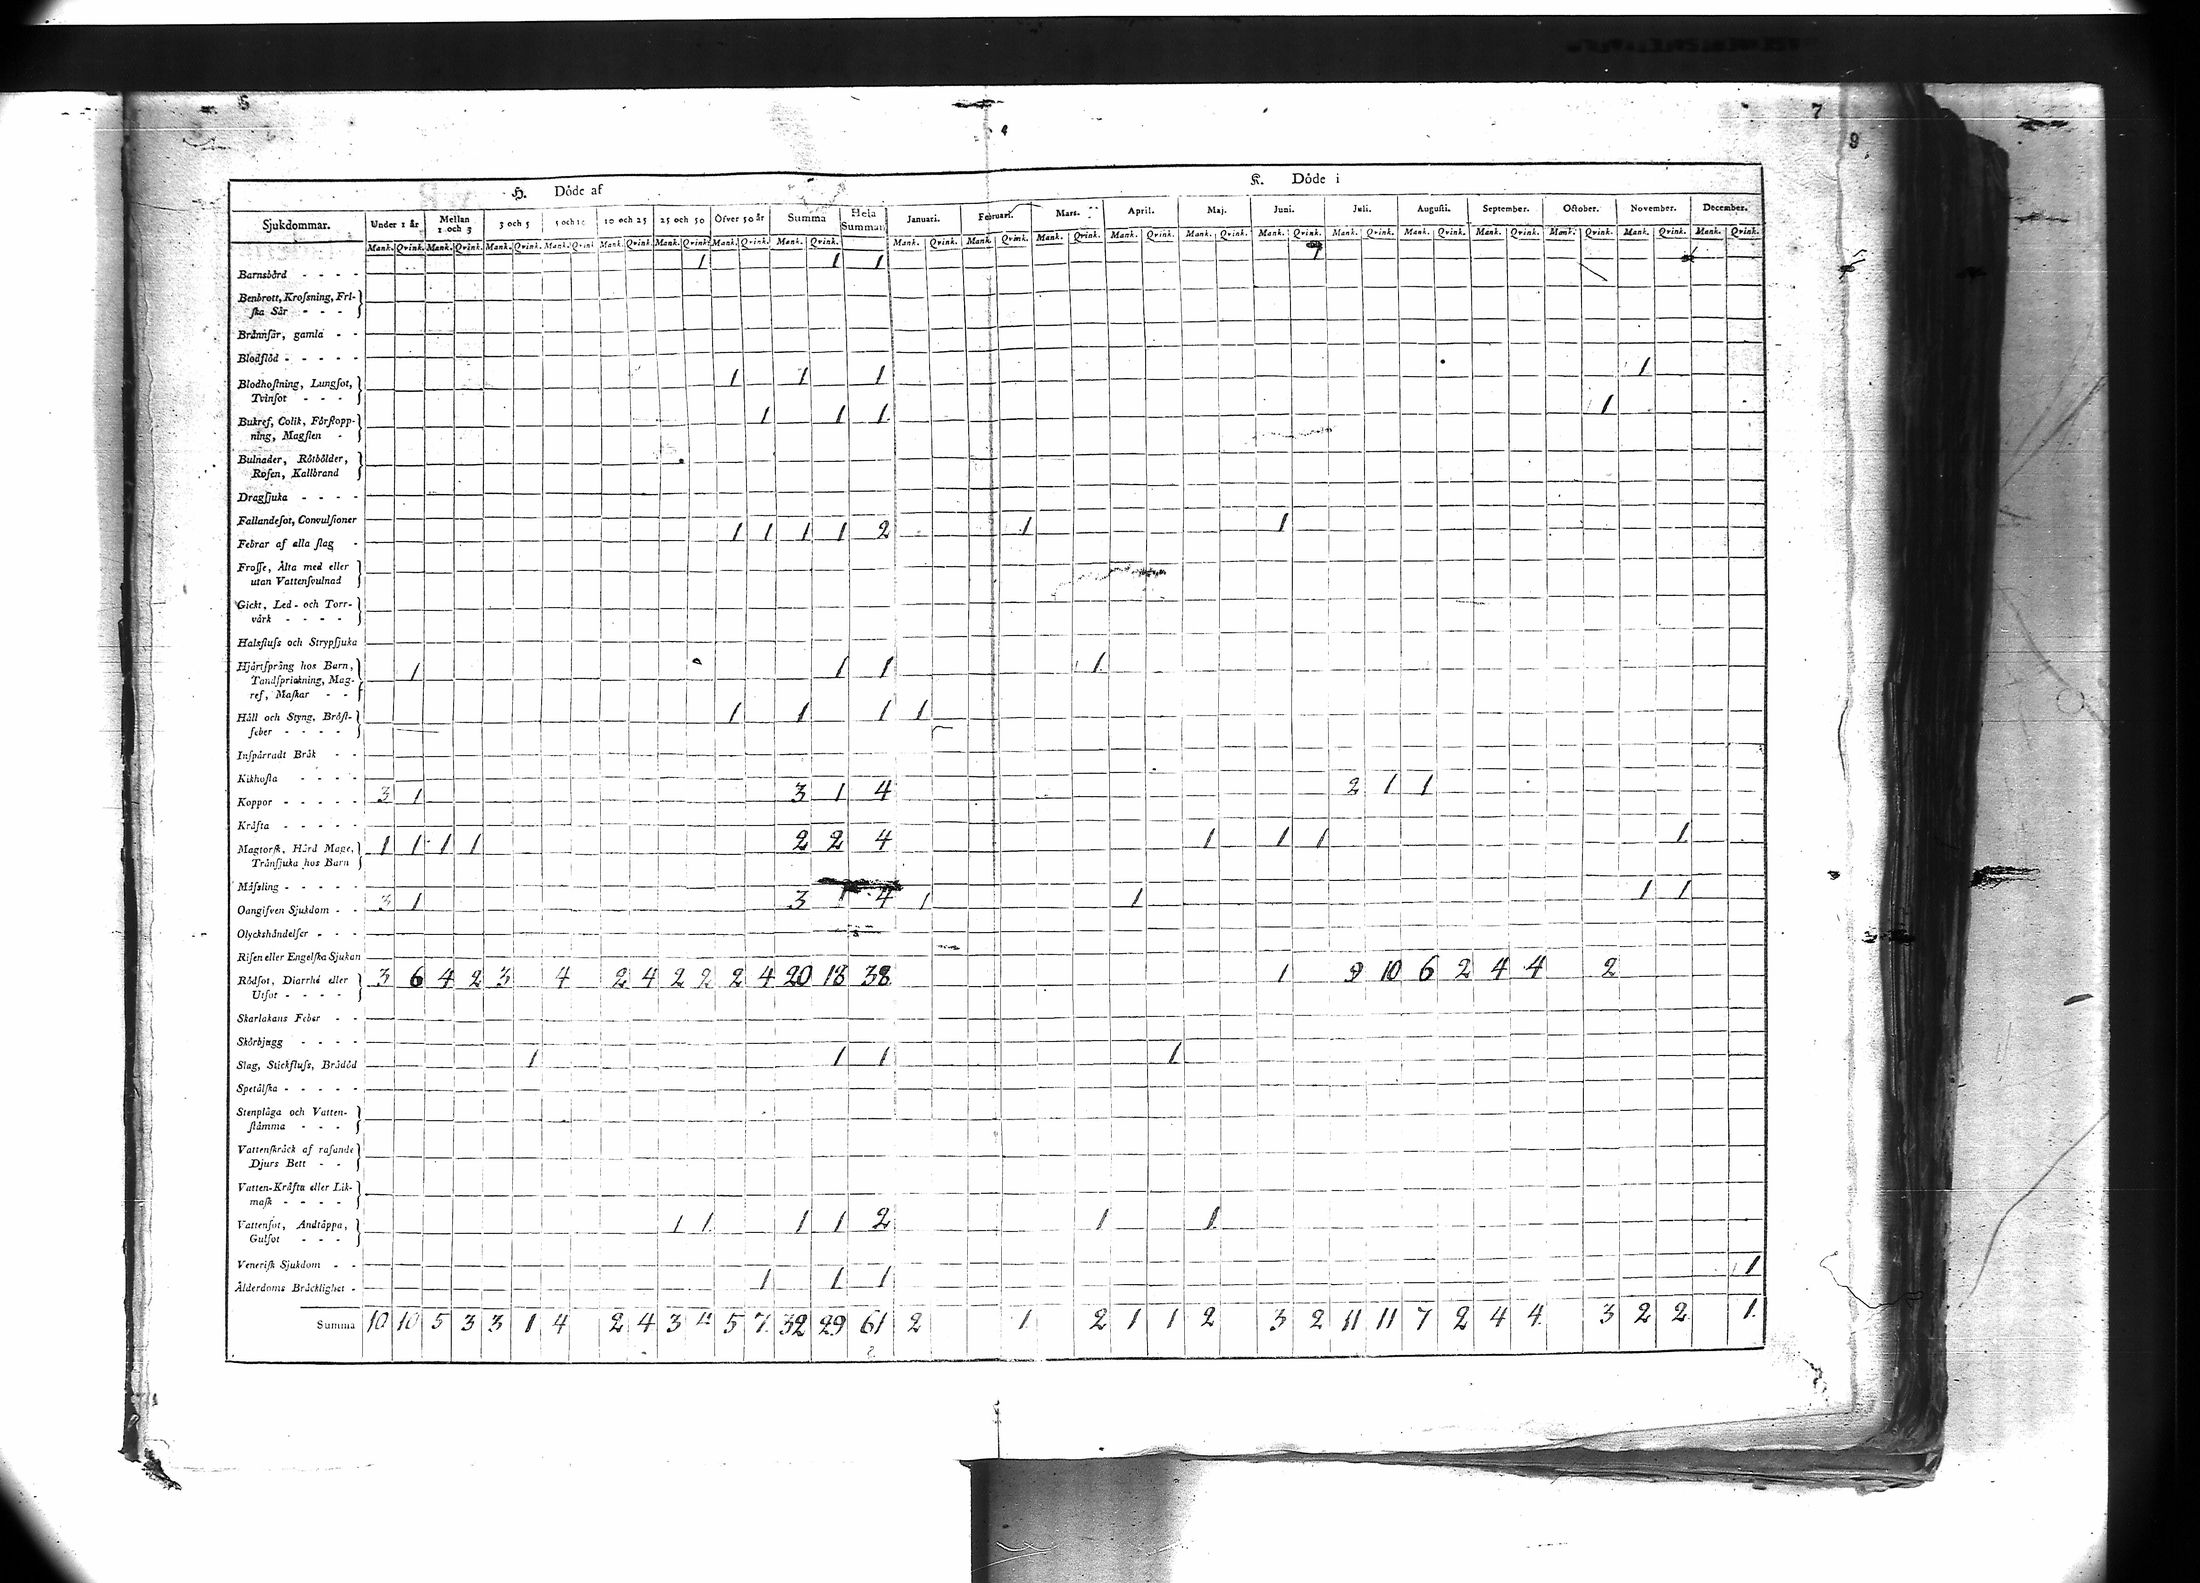 7
8
H. Döde af K. Döde i
Sjukdommar. Under 1 år Mellan 1 och 3 3 och 5 5 och 10 10 och 25 25 och 50 Öfver 50 år Summa Hela Summan Januari. Februari. Mars. April. Maj. Juni. Juli. Augusti. September. October. November. December.
Mank. Qvink. Mank. Qvink. Mank. Qvink. Mank. Qvink. Mank. Qvink. Mank. Qvink. Mank. Qvink. Mank. Qvink. Mank. Qvink. Mank. Qvink. Mank. Qvink. Mank. Qvink. Mank. Qvink. Mank. Qvink. Mank. Qvink. Mank. Qvink. Mank. Qvink. Mank. Qvink. Mank. Qvink. Mank. Qvink.
Barnsbörd - - - - 1 1 1
Benbrott, Krosſning, Fri-
ſka Sår - - -
Brännſår, gamla - -
Blodflöd - - - - -
Blodhoſtning, Lungſot, 1 1 1 1
Tvinſot - - -
Bukref, Colik, Förſtopp- 1 1 1 1
ning, Magſten -
Bulnader, Rötbölder,
Roſen, Kallbrand
Dragſjuka - - - -
Fallandeſot, Convulſioner
Febrar af alla ſlag - 1 1 1 1 2 1 1
Froſſe, Älta med eller
utan Vattenſvulnad
Gickt, Led- och Torr-
värk - - - -
Halsfluſs och Strypſjuka
Hjärtſprång hos Barn, 1 1 1 1
Tandſprickning, Mag-
ref, Maſkar - -
Håll och Styng, Bröſt- 1 1 1 1
feber - - - -
Inſpärradt Bråk - -
Kikhoſta - - - -
Koppor - - - - - 3 1 3 1 4 2 1 1
Kräfta - - - - -
Magtorſk, Hård Mage, 1 1 1 1 2 2 4 1 1 1 1
Tränſjuka hos Barn
Mäſsling - - - - -
Oangifven Sjukdom - - 3 1 3 1 4 1 1 1 1
Olyckshändelſer - - -
Riſen eller Engelſka Sjukan
Rödſot, Diarrhé eller 3 6 4 2 3 4 2 4 2 2 2 4 20 18 38 1 9 10 6 2 4 4 2
Utſot - - - -
Skarlakans Feber - -
Skörbjugg - - - -
Slag, Stickfluſs, Brådöd 1 1 1 1
Spetälſka - - - - -
Stenplåga och Vatten-
ſtämma - - -
Vattenſkräck af raſande
Djurs Bett - -
Vatten-Kräfta eller Lik-
maſk - - - -
Vattenſot, Andtäppa, 1 1 1 1 2 1 1
Gulſot - - -
Veneriſk Sjukdom - -
Ålderdoms Bräcklighet - 1 1 1 1
Summa 10 10 5 3 3 1 4 2 4 3 4 5 7 32 29 61 2 1 2 1 1 2 3 2 11 11 7 2 4 4 3 2 2 1